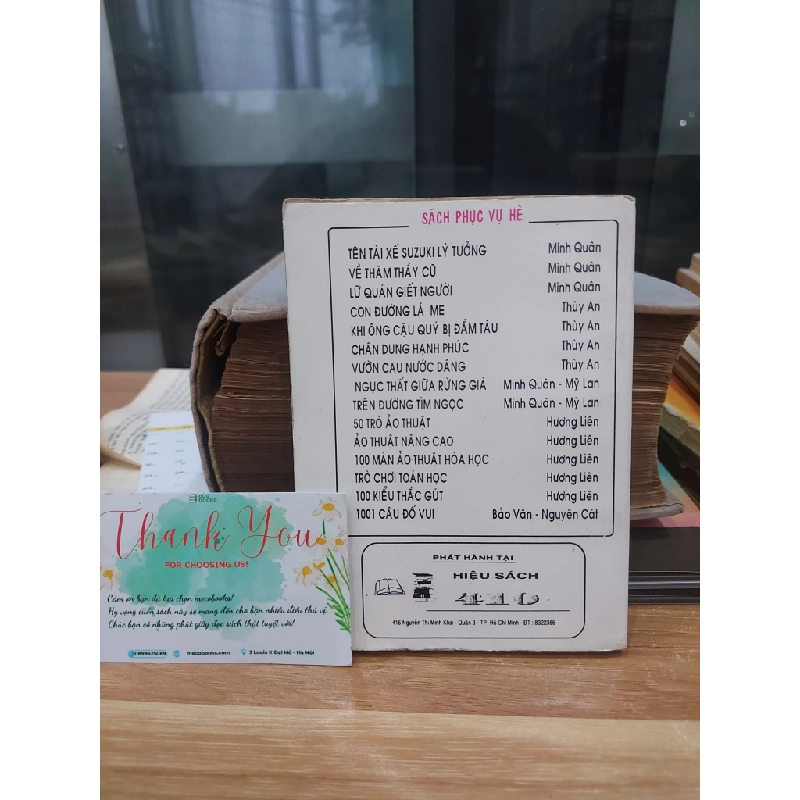 SÁCH PHỤC VỤ HÈ
TÊN TÀI XẾ SUZUKI LÝ TƯỞNG Minh Quân
VỀ THĂM THẦY CŨ Minh Quân
LỮ QUÁN GIẾT NGƯỜI Minh Quân
CON ĐƯỜNG LÁ ME Thùy An
KHI ÔNG CẬU QUÝ BỊ ĐẮM TÀU Thùy An
CHÂN DUNG HẠNH PHÚC Thùy An
VƯỜN CAU NƯỚC DÂNG Thùy An
NGỤC THẤT GIỮA RỪNG GIÀ Minh Quân - Mỹ Lan
TRÊN ĐƯỜNG TÌM NGỌC Minh Quân - Mỹ Lan
50 TRÒ ẢO THUẬT Hương Liên
ẢO THUẬT NÂNG CAO Hương Liên
100 MÀN ẢO THUẬT HÓA HỌC Hương Liên
TRÒ CHƠI TOÁN HỌC Hương Liên
100 KIỂU THẮC GÚT Hương Liên
1001 CÂU ĐỐ VUI Bảo Vân - Nguyên Cát
PHÁT HÀNH TẠI
HIỆU SÁCH
416 Nguyễn Thị Minh Khai - Quận 3 - TP. Hồ Chí Minh - ĐT : 8322386
Thank You
FOR CHOOSING US!
Cảm ơn bạn đã lựa chọn mecobooks!
Hy vọng cuốn sách này sẽ mang đến cho bạn nhiều điều thú vị
Chúc bạn có những phút giây đọc sách thật tuyệt vời!
mecobooks.com